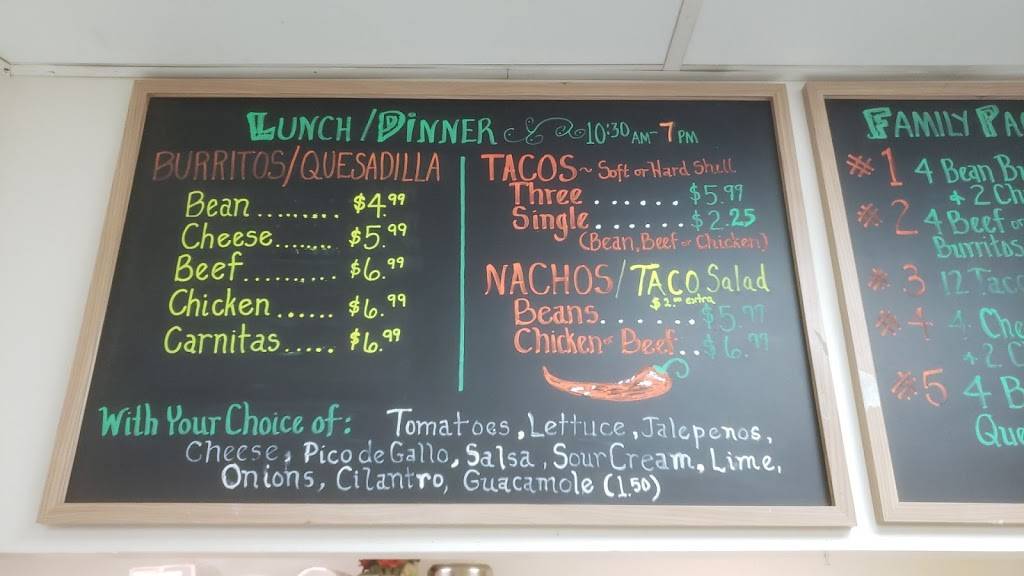 LUNCH / DINNER 10:30 AM - 7 PM
BURRITOS/QUESADILLA
Bean ......... $4.99
Cheese....... $5.99
Beef.......... $6.99
Chicken ...... $6.99
Carnitas..... $6.99
TACOS ~ Soft or Hard Shell
Three ...... $5.99
Single....... $2.25
(Bean, Beef or Chicken)
NACHOS/TACO Salad
extra
Beans....... $5.99
Chicken or Beef.. $6.99
With Your Choice of: Tomatoes, Lettuce, Jalepenos,
Cheese, Pico de Gallo, Salsa, Sour Cream, Lime,
Onions, Cilantro, Guacamole (1.50)
FAMILY
#1 4 Bean
+ 2
#2 4 Beef or
Burritos
#3 12
#4 4
+ 2
#5 4